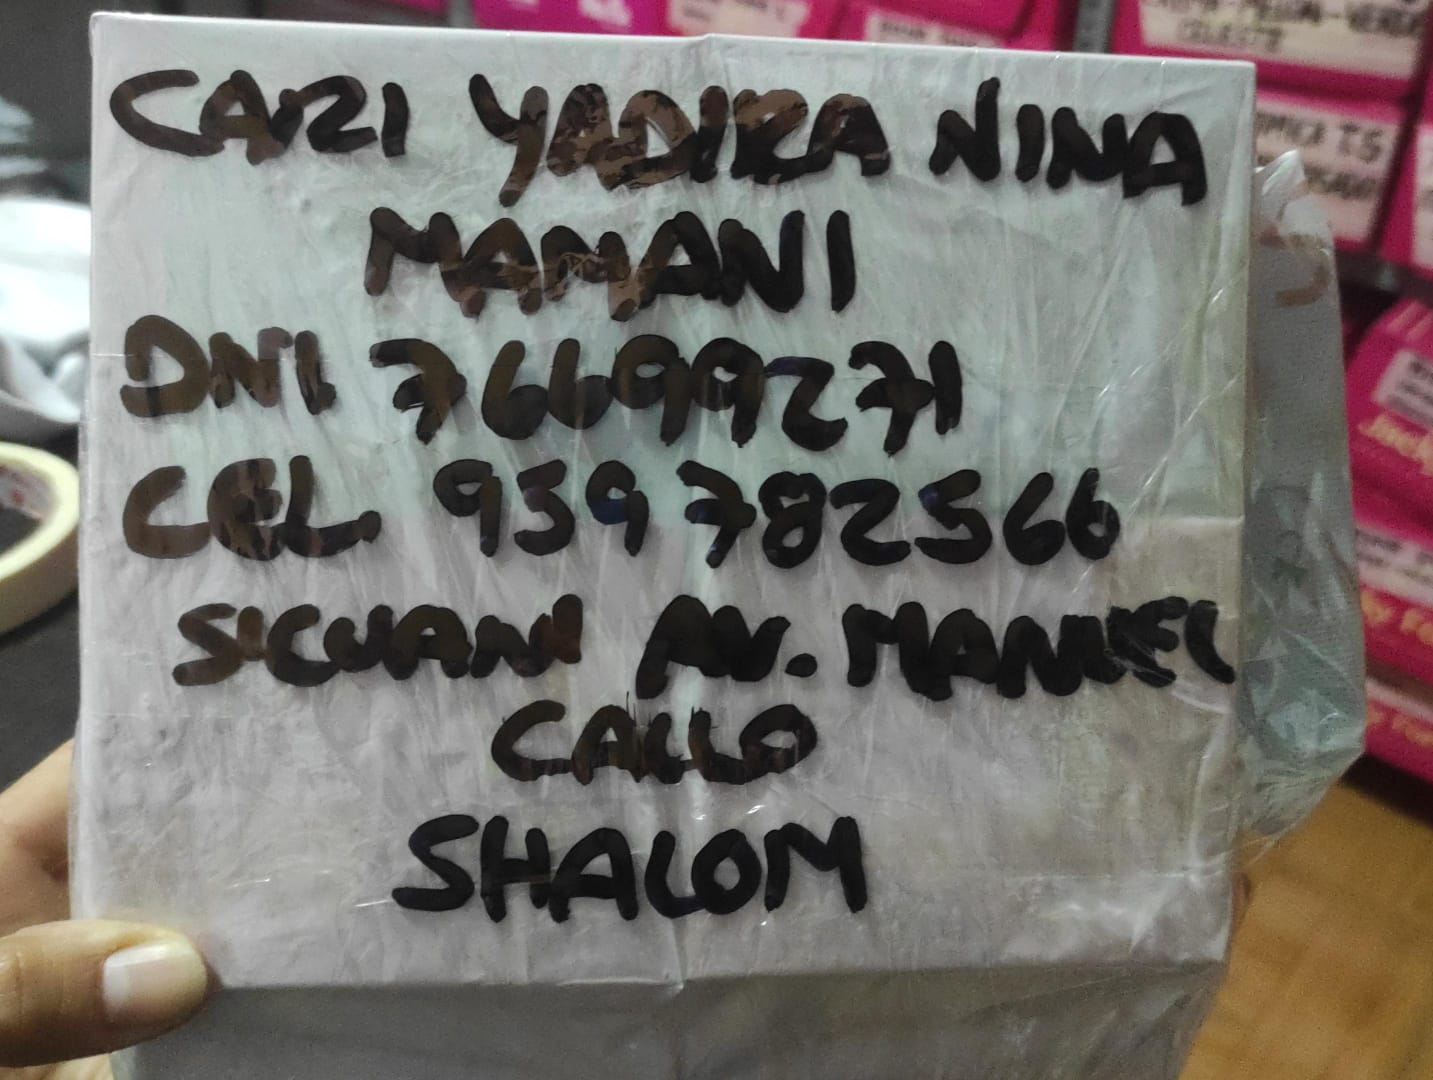 CARI YADIRA NINA
MAMANI
DNI 76699271
CEL. 959782566
SICUANI AV. MANUEL
CALLO
SHALOM
CELESTE